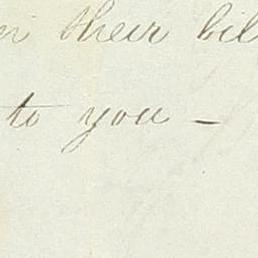 their bil
to you —